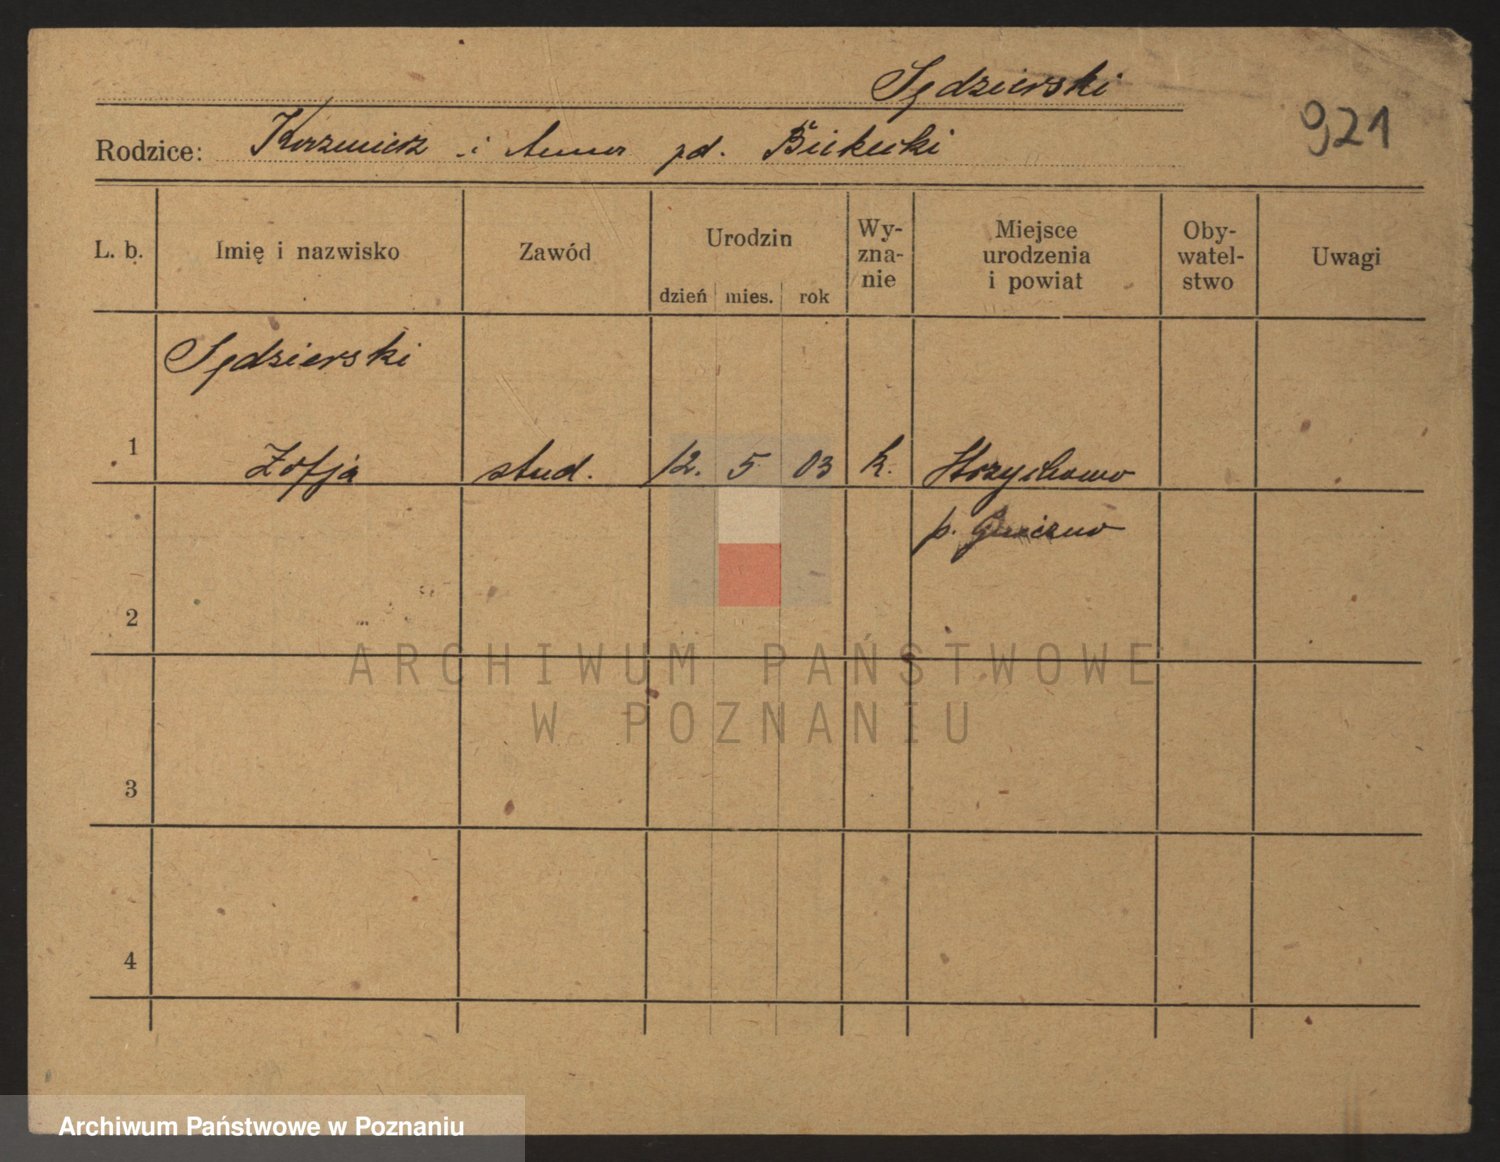 Sędzierski
921
Rodzice: Kazmierz i Anna zd.
L. b. Imię i nazwisko Zawód Urodzin dzień mies. rok Wy-zna-nie Miejsce urodzenia i powiat Oby-watel-stwo Uwagi
Sędzierski
1 Zofja stud. 12. 5 03 k.
p. Gniezno
2
3
4
ARCHIWUM PAŃSTWOWE
W POZNANIU
Archiwum Państwowe w Poznaniu